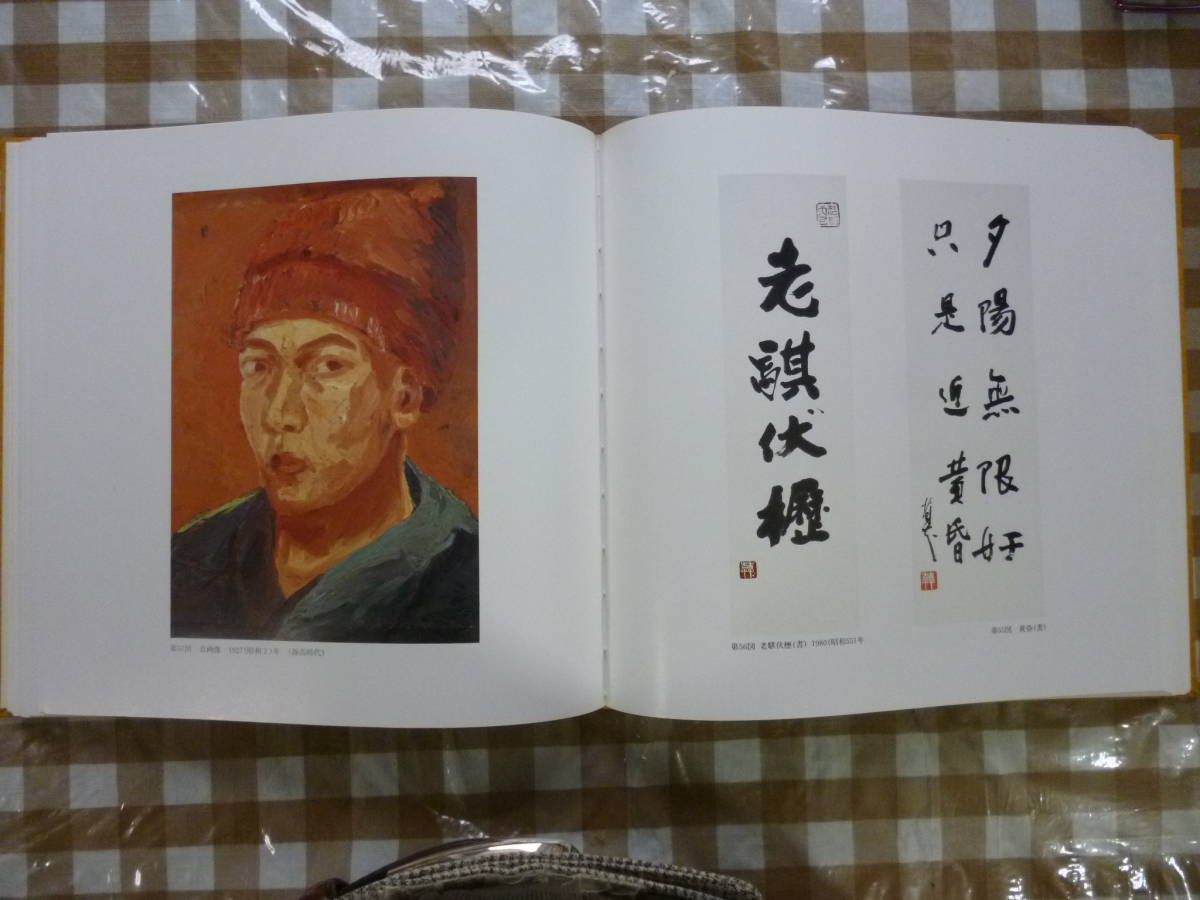 夕陽無限好
只是近黄昏
老騏伏櫪
第56図 老騏伏櫪(書) 1980(昭和55)年
第55図 黄昏(書)
第57図 自画像 1927(昭和2)年